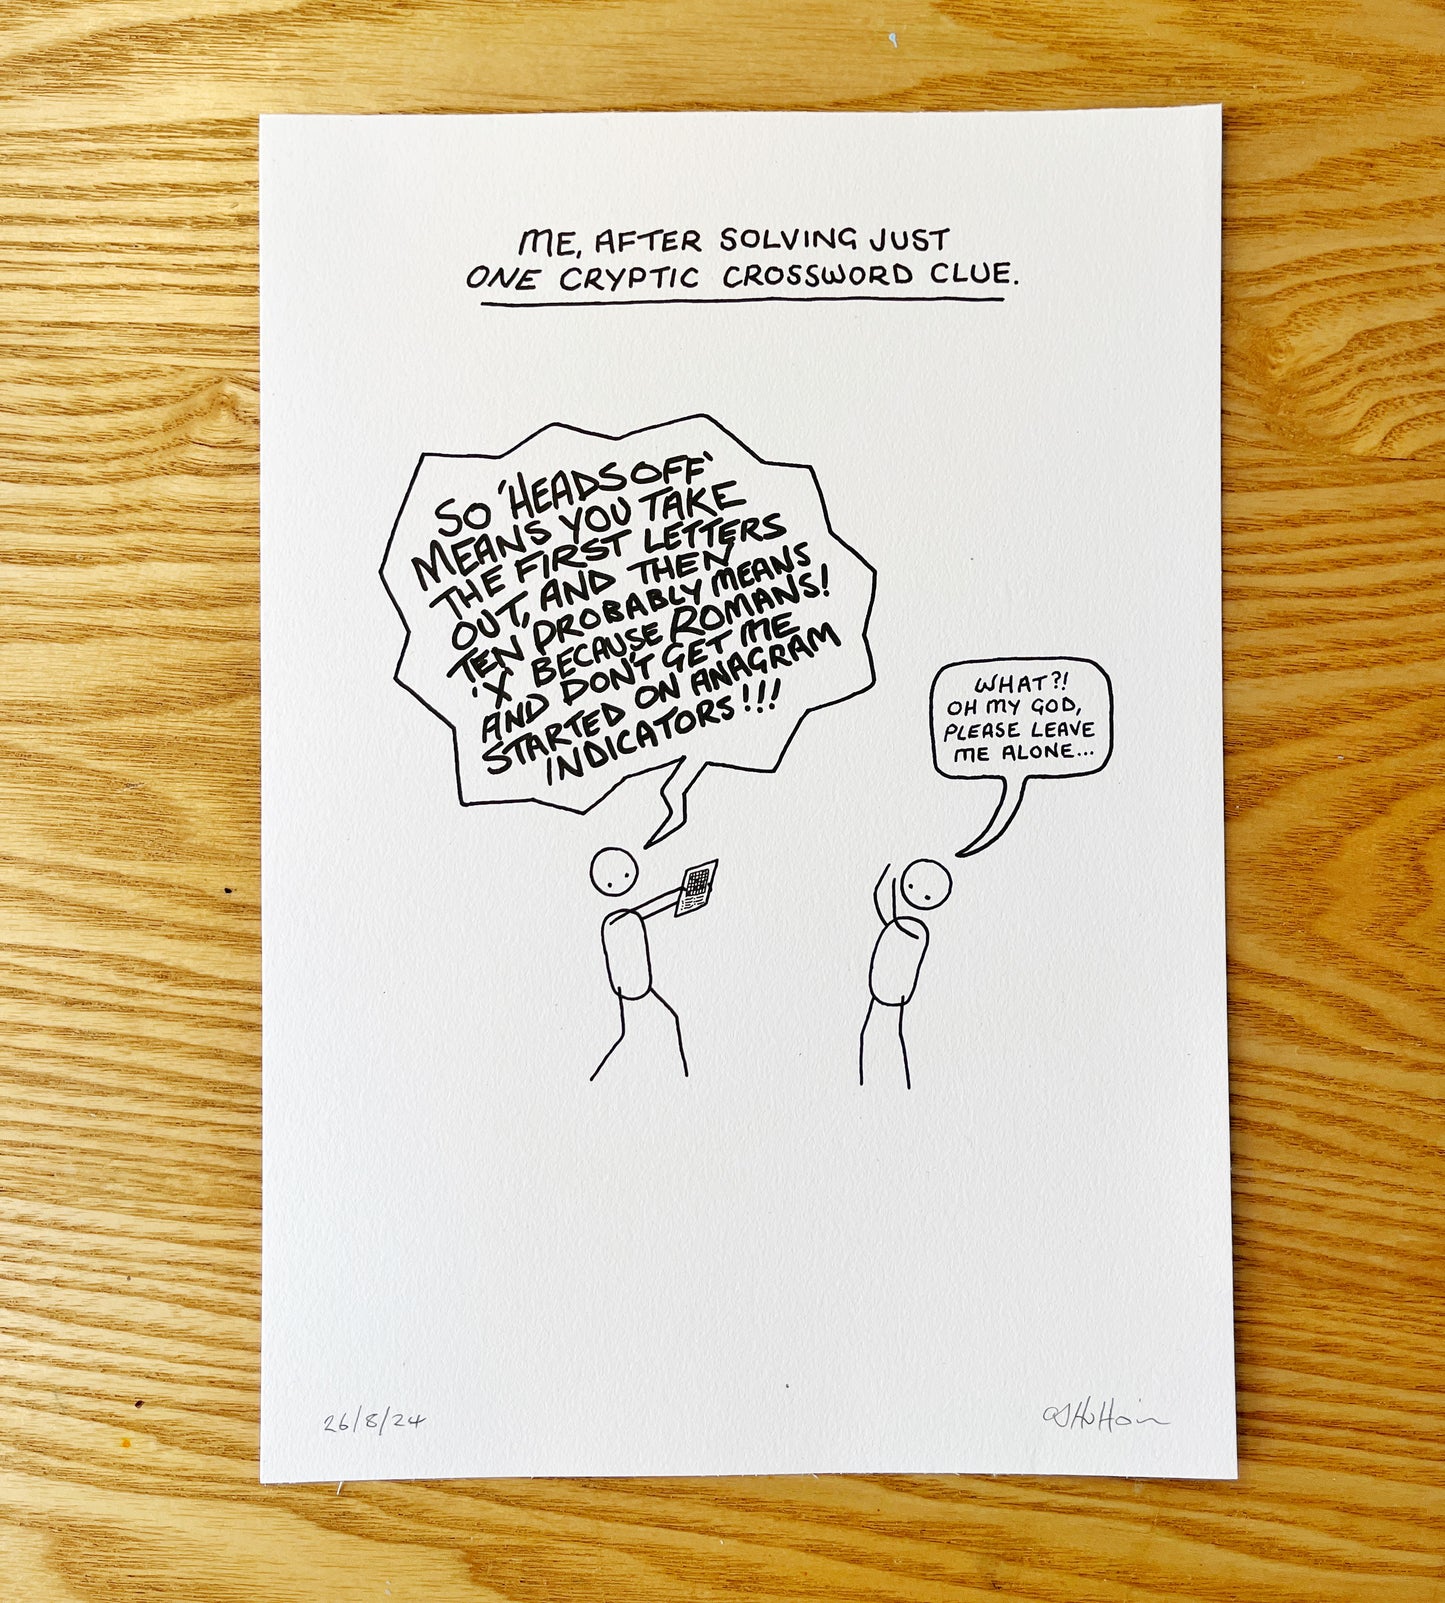 ME, AFTER SOLVING JUST
ONE CRYPTIC CROSSWORD CLUE.
SO 'HEADS OFF'
MEANS YOU TAKE
THE FIRST LETTERS
OUT, AND THEN
TEN PROBABLY MEANS
'X' BECAUSE ROMANS!
AND DON'T GET ME
STARTED ON ANAGRAM
INDICATORS!!!
WHAT?!
OH MY GOD,
PLEASE LEAVE
ME ALONE...
26/8/24